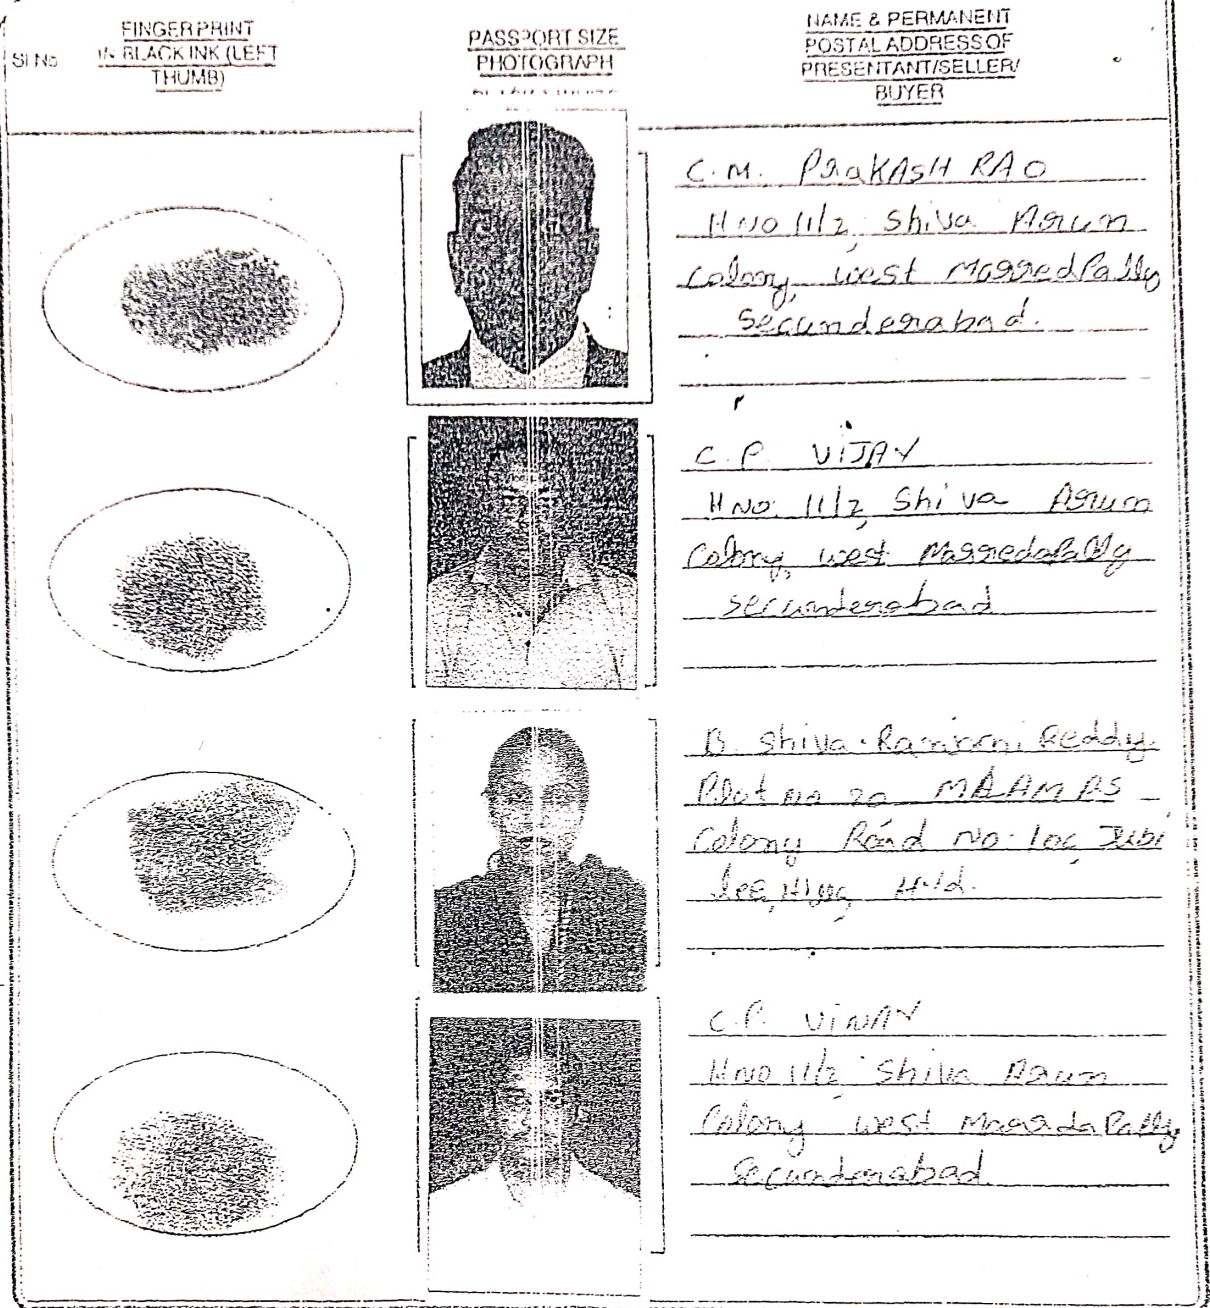 Sl No
FINGER PRINT
IN BLACK INK (LEFT
THUMB)
PASSPORT SIZE
PHOTOGRAPH
NAME & PERMANENT
POSTAL ADDRESS OF
PRESENTANT/SELLER/
BUYER
C. M. PRAKASH RAO
H NO 11/2, Shiva Arun
Colony, West MarredPally
Secunderabad.
C. P. VIJAY
H NO. 11/2, Shiva Arun
Colony, West MarredaPally
secunderabad
B. Shiva Reddy.
Plot no 20
Colony Road No. 10c, Jubi
lee, Hills, Hyd.
C.P. VINAY
H NO 11/2 Shiva Arun
Colony West MarredaPally
Secunderabad